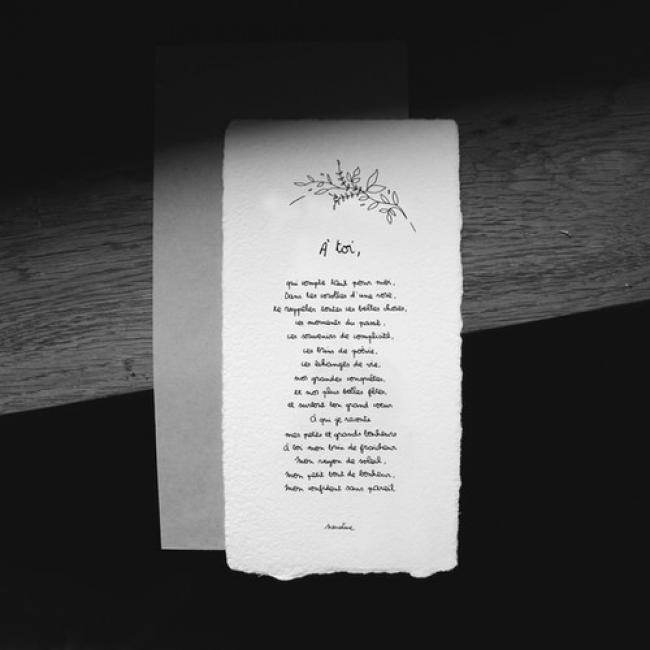 À toi,
qui compte tant pour moi,
Dans les corolles d'une rose,
te rappeler toutes ces belles choses,
ces moments du passé,
ces souvenirs de complicité,
ces brins de poésie,
ces échanges de vie,
nos grandes conquêtes,
et nos plus belles fêtes,
et surtout ton grand cœur
À qui je raconte
mes petits et grands bonheurs
À toi mon brin de fraicheur
Mon rayon de soleil,
Mon petit bout de bonheur,
Mon confident sans pareil